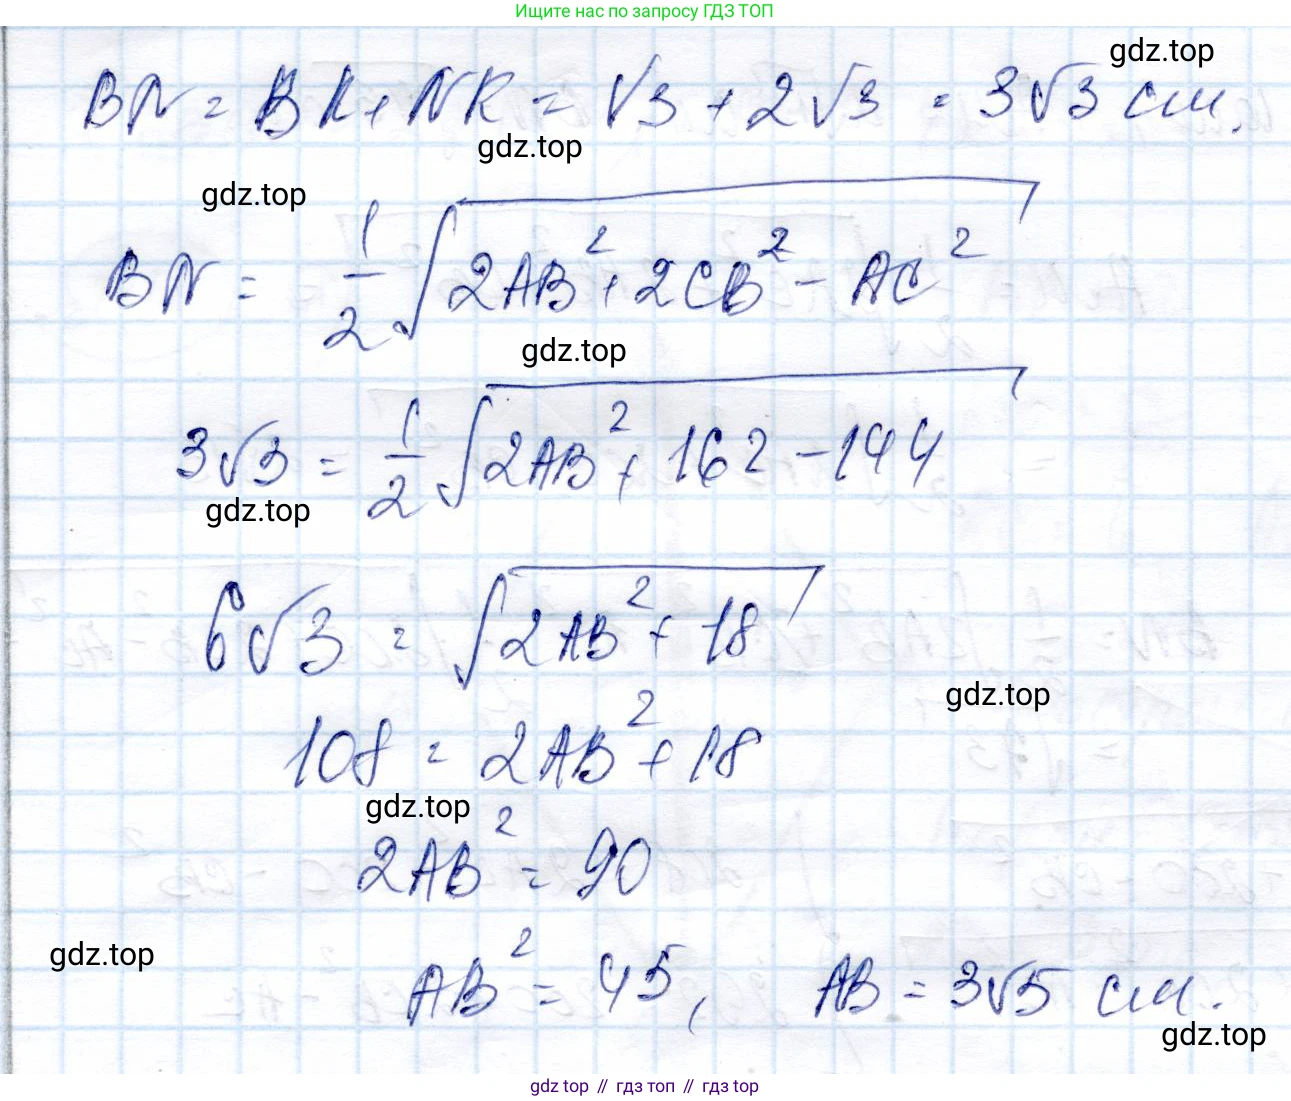 Ищите нас по запросу ГДЗ ТОП
gdz.top
BN = BK + NK = √3 + 2√3 = 3√3 см.
gdz.top
gdz.top
BN = 1/2 √(2AB² + 2CB² - AC²)
gdz.top
3√3 = 1/2 √(2AB² + 162 - 144)
gdz.top
6√3 = √(2AB² + 18)
gdz.top
108 = 2AB² + 18
gdz.top
2AB² = 90
gdz.top
AB² = 45, AB = 3√5 см.
gdz.top
gdz top // гдз топ // гдз top